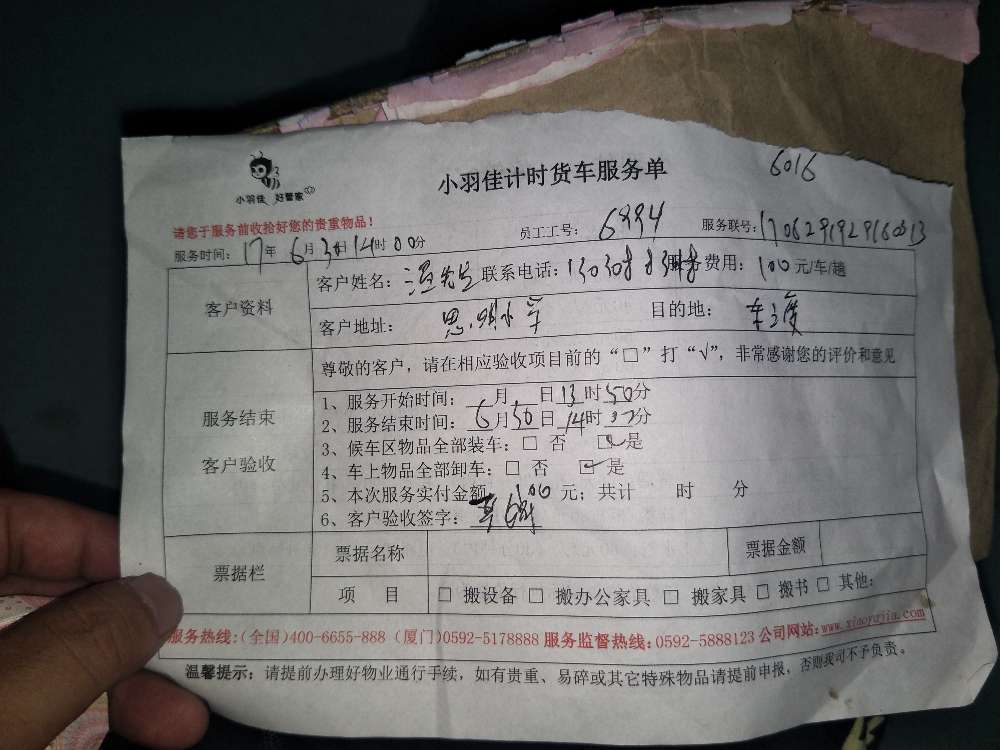 小羽佳 好管家
小羽佳计时货车服务单
6016
请您于服务前收拾好您的贵重物品！
员工工号： 6994
服务联号：
服务时间： 17年 6月30日14时00分
客户资料
客户姓名： 先生 联系电话： 服务费用： 100元/车/趟
客户地址： 思明小学 目的地：
尊敬的客户，请在相应验收项目前的“□”打“√”，非常感谢您的评价和意见
服务结束
客户验收
1、服务开始时间： 月 日13时50分
2、服务结束时间： 6月30日14时 分
3、候车区物品全部装车：□ 否 ☑是
4、车上物品全部卸车：□ 否 ☑是
5、本次服务实付金额 100 元；共计 时 分
6、客户验收签字：
票据栏
票据名称 票据金额
项 目 □ 搬设备 □ 搬办公家具 □ 搬家具 □ 搬书 □ 其他：
服务热线：(全国)400-6655-888 (厦门)0592-5178888 服务监督热线：0592-5888123 公司网站：www.xiaoyujia.com
温馨提示：请提前办理好物业通行手续，如有贵重、易碎或其它特殊物品请提前申报，否则我司不予负责。